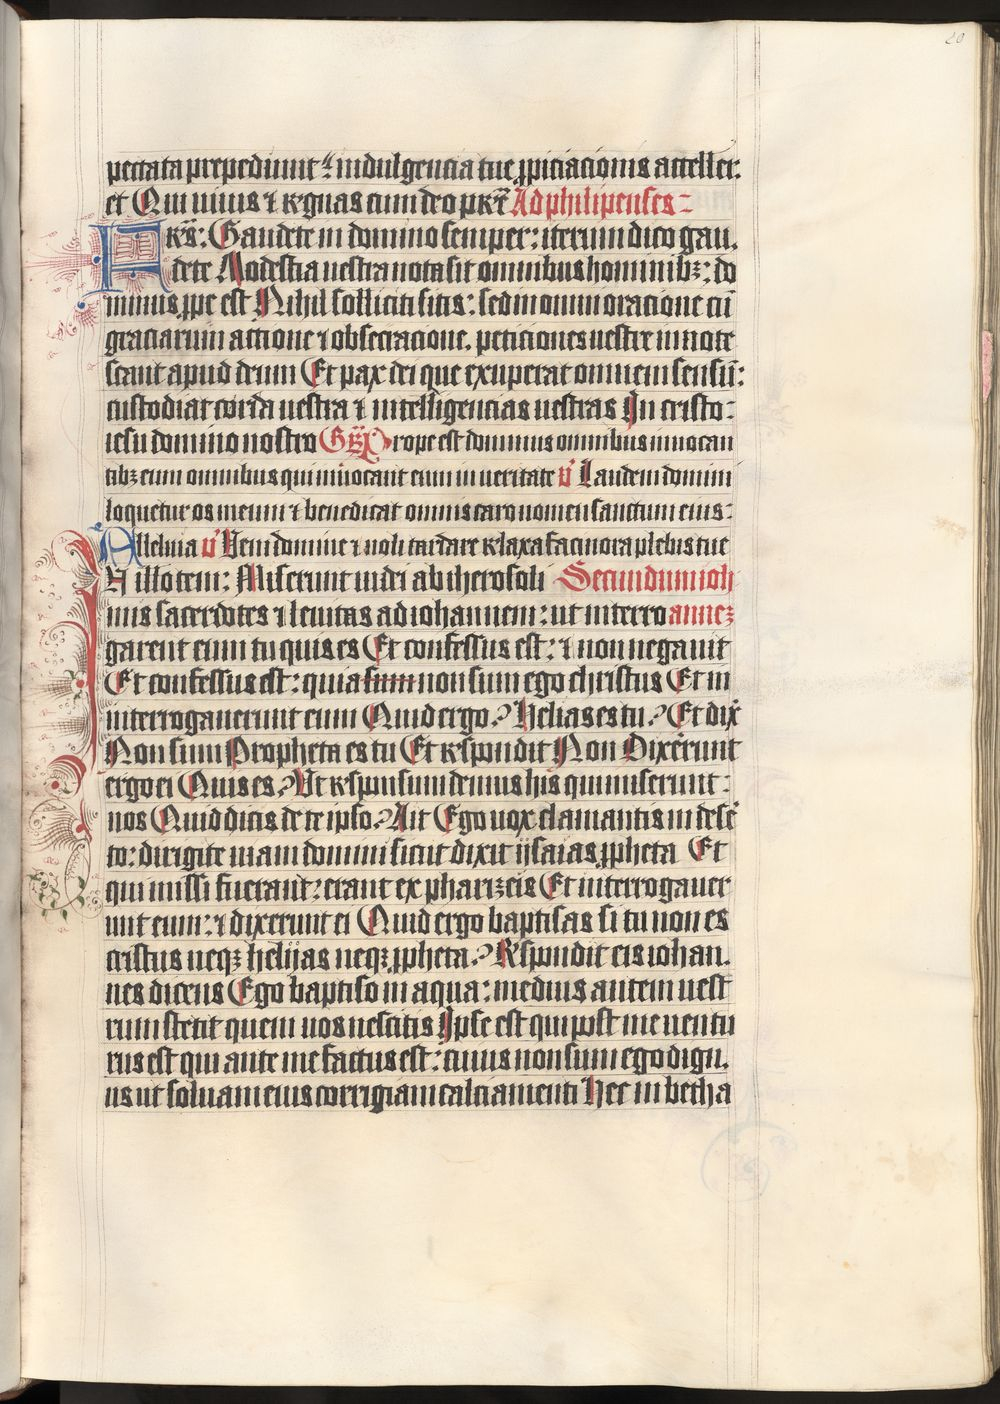 20
peccata prepediunt ⁊ indulgencia tue ꝓpiciacionis acceller:
et Qui uiuis ⁊ regnas cum deo pr̄e Ad philipenses:
Fr̄s: Gaudete in domino semper: iterum dico gau,
dete Modestia uestra nota sit omnibus hominibꝫ: do
minus ꝓpe est Nihil solliciti sitis: sed in omni oracione cū
graciarum actione ⁊ obsecracione, peticiones uestre innote
scant apud deum Et pax dei que exuperat omnem sensū:
custodiat corda uestra ⁊ intelligencias uestras In cristo:
iesu domino nostro Gr̄ Prope est dominus omnibus inuocan
tibꝫ eum omnibus qui inuocant eum in ueritate v̓ Laudem domini
loquetur os meum ⁊ benedicat omnis caro nomen sanctum eius:
Alleluia v̓ Veni domine ⁊ noli tardare relaxa facinora plebis tue
IN illo tem: Miserunt iudei ab iherosoli Secundum ioh
mis sacerdotes ⁊ leuitas ad iohannem: ut interro anneꝫ
garent eum tu quis es Et confessus est: ⁊ non negauit
Et confessus est: quia sum non sum ego christus Et in
interrogauerunt eum Quid ergo? Helias es tu? Et dix̄
Non sum Propheta es tu Et respondit Non Dixerunt
ergo ei Quis es? Ut responsum demus his qui miserunt:
nos Quid dicis de te ipso? Ait Ego uox clamantis in deser̄
to: dirigite uiam domini sicut dixit ijsaias ꝓpheta Et
qui missi fuerant: erant ex phariꝫeis Et interrogauer
unt eum: ⁊ dixerunt ei Quid ergo baptisas si tu non es
cristus neqꝫ helijas neqꝫ ꝓpheta? Respondit eis iohan,
nes dicens Ego baptiso in aqua: medius autem uest
rum stetit quem uos nescitis Ipse est qui post me uentu
rus est qui ante me factus est: cuius non sum ego dign,
us ut soluam eius corrigiam calciamenti Hec in betha